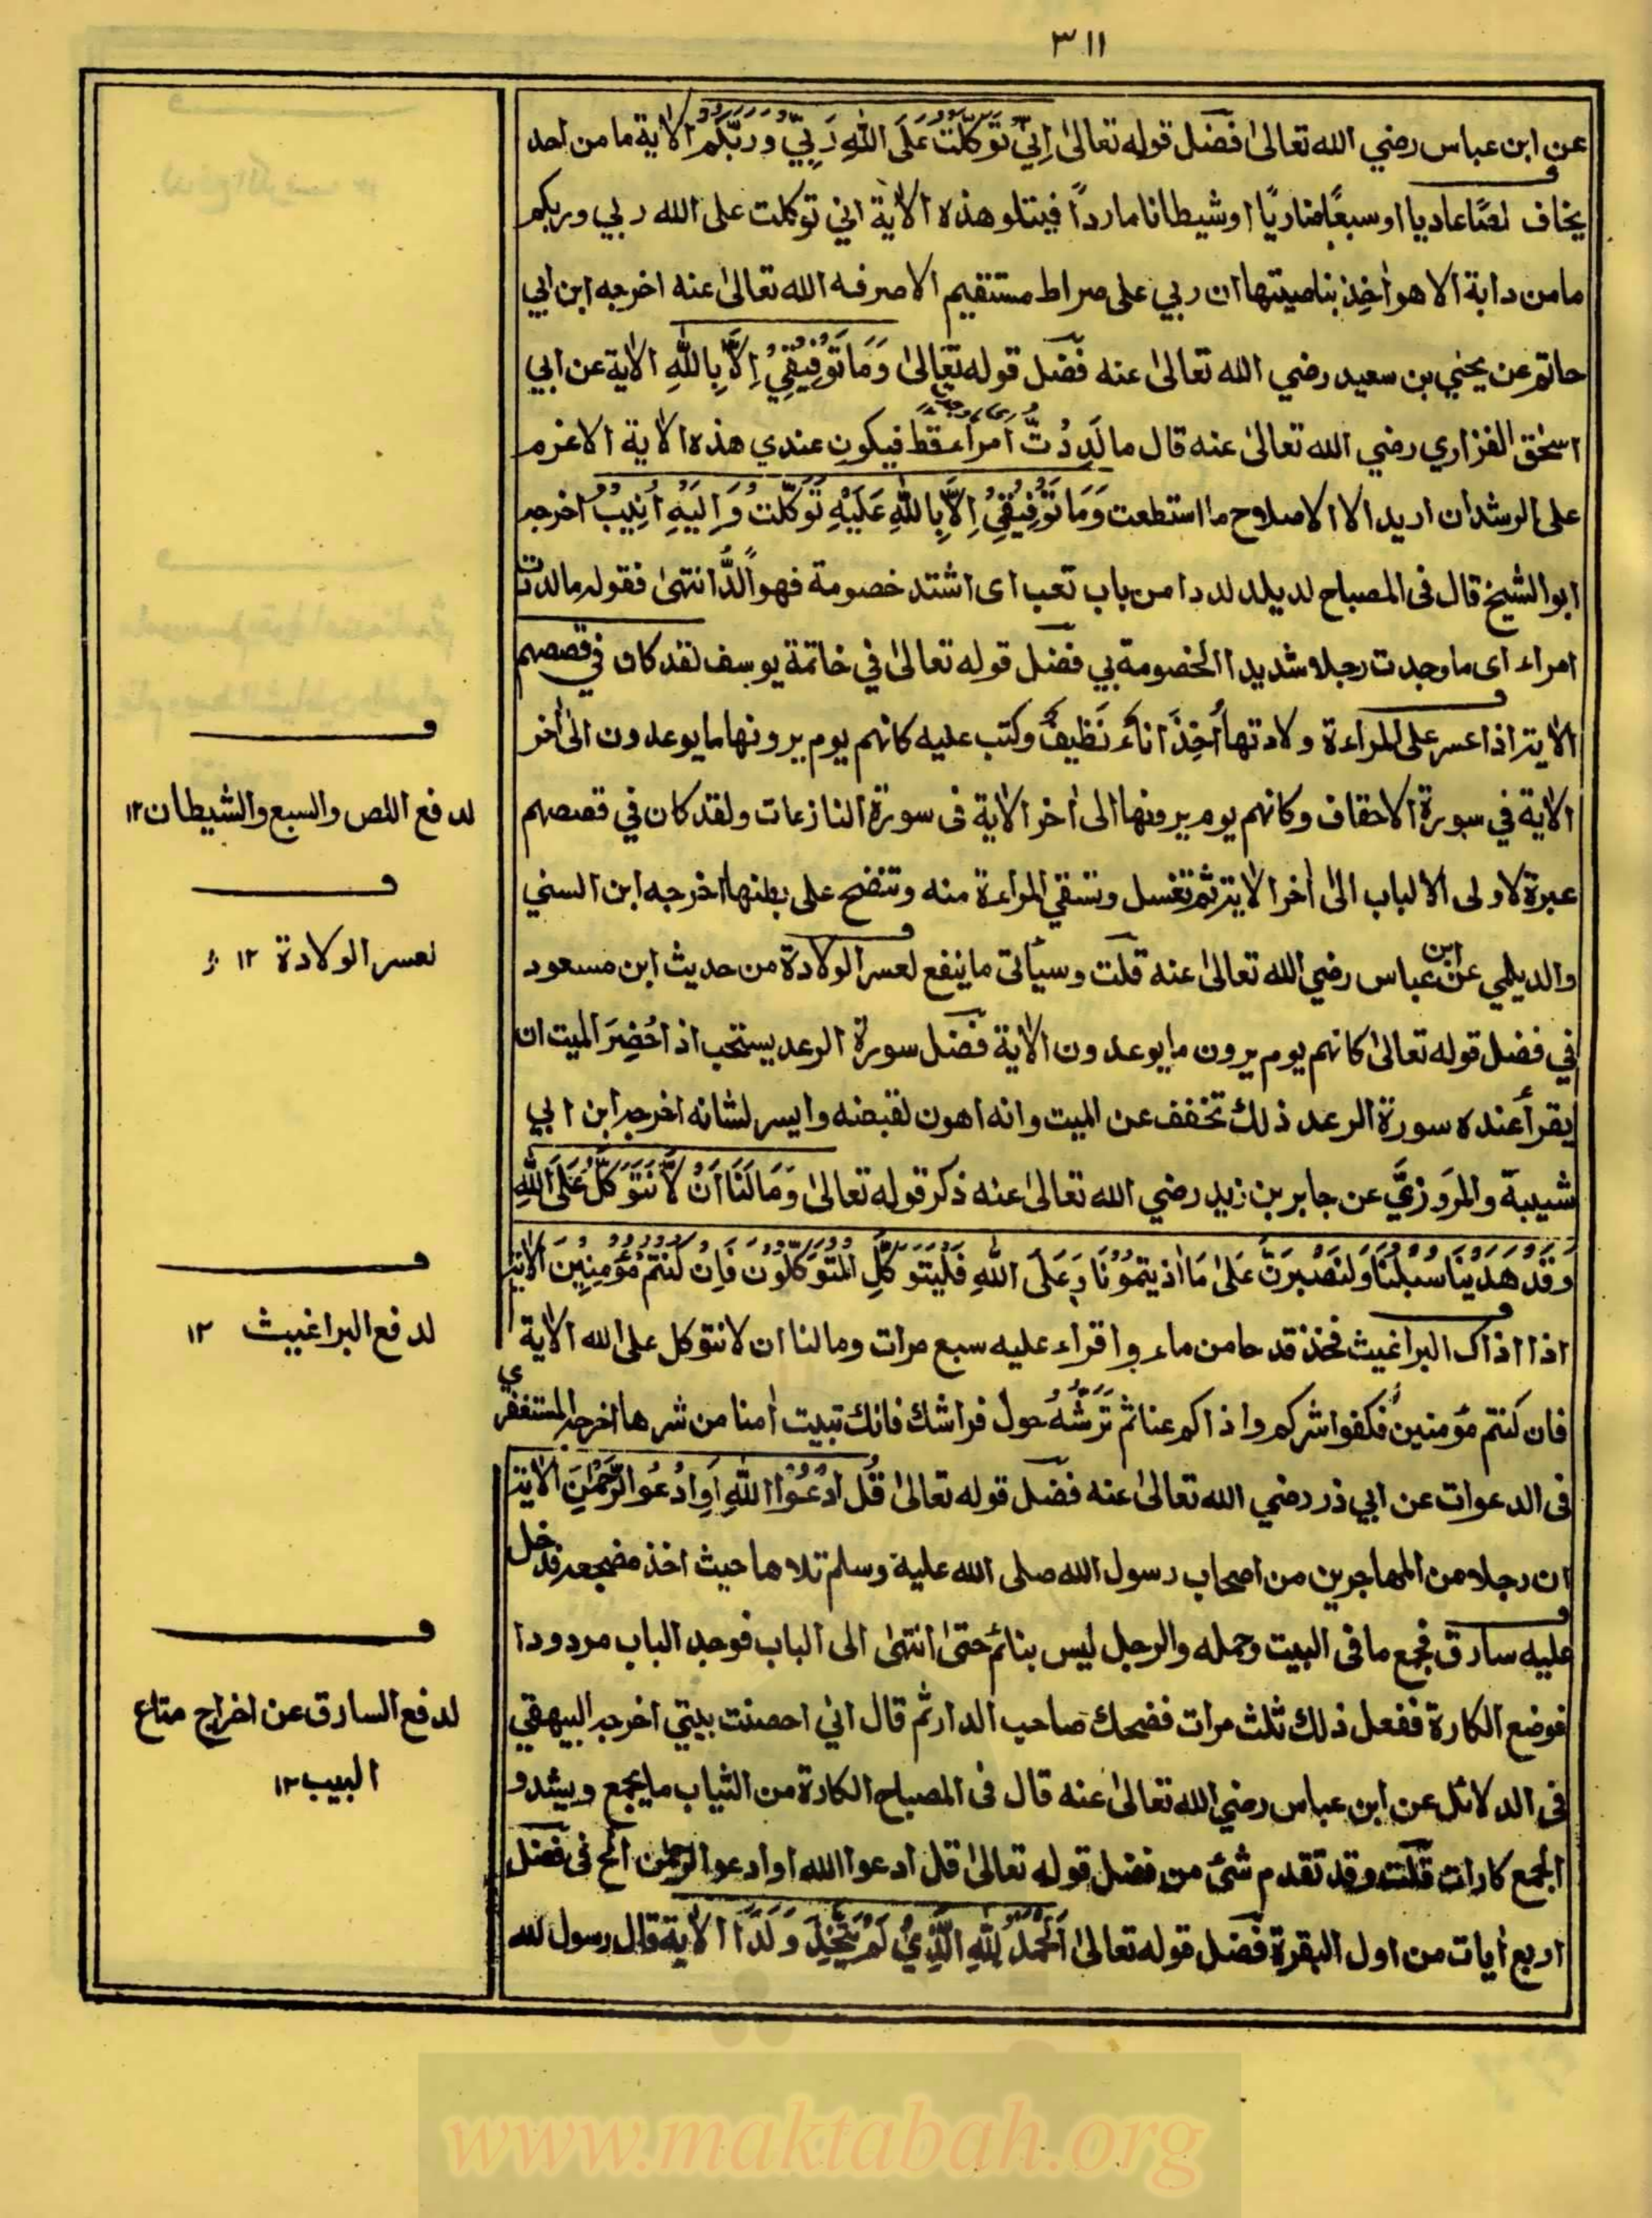 ٣١١
عن ابن عباس رضي الله تعالىٰ فضل قوله تعالىٰ اِنِّي تَوَكَّلْتُ عَلَى اللهِ رَبِّي وَرَبِّكُمْ الاٰية ما من احد
يخاف لصًا عاديا او سبعًا ضاريًا او شيطانا ماردًا فيتلو هذه الاٰية اني توكلت على الله ربي وربكم
ما من دابة الا هو اٰخِذ بناصيتها ان ربي على صراط مستقيم الا صرفه الله تعالىٰ عنه اخرجه ابن ابي
حاتم عن يحيي بن سعيد رضي الله تعالىٰ عنه فضل قوله تعالىٰ وَمَا تَوْفِيْقِيْ اِلَّا بِاللهِ الاٰية عن ابي
اسحٰق الفزاري رضي الله تعالىٰ عنه قال ما لَدِدْتُّ امراء قط فيكون عندي هذه الاٰية الا عزم
على الرشد ان اريد الا الاصلاح ما استطعت وَمَا تَوْفِيْقِيْ اِلَّا بِاللهِ عَلَيْهِ تَوَكَّلْتُ وَاِلَيْهِ اُنِيْبُ اخرجه
ابو الشيخ قال فى المصباح لد يلد لددا من باب تعب اى اشتد خصومة فهو اَلَدُّ انتهىٰ فقوله ما لددت
امراء اى ما وجدت رجلا شديدا الخصومة بي فضل قوله تعالىٰ في خاتمة يوسف لقد كان في قصصهم
الاٰية اذا عسر على المراءة ولادتها اُخِذَ اناءٌ نَظِيفٌ وكتب عليه كانهم يوم يرونها ما يوعدون الىٰ اٰخر
الاٰية في سورة الاحقاف وكانهم يوم يرونها الى اٰخر الاٰية فى سورة النازعات ولقد كان في قصصهم
عبرة لاولى الالباب الىٰ اٰخر الاٰية ثم تغسل وتسقي المراءة منه وتنضح على بطنها اخرجه ابن السني
والديلمي عن ابن عباس رضي الله تعالىٰ عنه قلت وسيأتى ما ينفع لعسر الولادة من حديث ابن مسعود
في فضل قوله تعالىٰ كانهم يوم يرون ما يوعدون الاٰية فضل سورة الرعد يستحب اذا حُضِرَ الميت ان
يقرأ عنده سورة الرعد ذلك تخفف عن الميت وانه اهون لقبضه وايسر لشانه اخرجه ابن ابي
شيبة والمَروَزِيُّ عن جابر بن زيد رضي الله تعالىٰ عنه ذكر قوله تعالىٰ وَمَا لَنَا اَنْ لَّا نَتَوَكَّلَ عَلَى اللهِ
وَقَدْ هَدٰيْنَا سُبُلَنَا وَلَنَصْبِرَنَّ عَلٰى مَا اٰذَيْتُمُوْنَا وَعَلَى اللهِ فَلْيَتَوَكَّلِ الْمُتَوَكِّلُوْنَ فَاِنْ كُنْتُمْ مُؤْمِنِيْنَ الاٰية
اذا اذاك البراغيث فخذ قدحا من ماء واقراء عليه سبع مرات وما لنا ان لا نتوكل على الله الاٰية
فان كنتم مؤمنين فكفوا شركم واذاكم عنا ثم تَرُشُّهُ حول فراشك فانك تبيت اٰمنا من شرها اخرجه المستغفري
فى الدعوات عن ابي ذر رضي الله تعالىٰ عنه فضل قوله تعالىٰ قُلِ ادْعُوا اللهَ اَوِ ادْعُوا الرَّحْمٰنَ الاٰية
ان رجلا من المهاجرين من اصحاب رسول الله صلى الله عليه وسلم تلاها حيث اخذ مضجعه فدخل
عليه سارق فجمع ما فى البيت وحمله والرجل ليس بنائم حتىٰ انتهىٰ الى الباب فوجد الباب مردودا
فوضع الكارة ففعل ذلك ثلٰث مرات فضحك صاحب الدار ثم قال اني احصنت بيتي اخرجه البيهقي
فى الدلائل عن ابن عباس رضي الله تعالىٰ عنه قال فى المصباح الكارة من الثياب ما يجمع ويشد و
الجمع كارات قلت وقد تقدم شئ من فضل قوله تعالىٰ قل ادعوا الله او ادعوا الرحمٰن الخ فى فضل
اربع اٰيات من اول البقرة فضل قوله تعالىٰ اَلْحَمْدُ لِلهِ الَّذِيْ لَمْ يَتَّخِذْ وَلَدًا الاٰية قال رسول لله
ف
لدفع اللص والسبع والشيطان ١٢
ف
لعسر الولادة ١٢
ف
لدفع البراغيث ١٢
ف
لدفع السارق عن اخراج متاع
البيت ١٢
www.maktabah.org